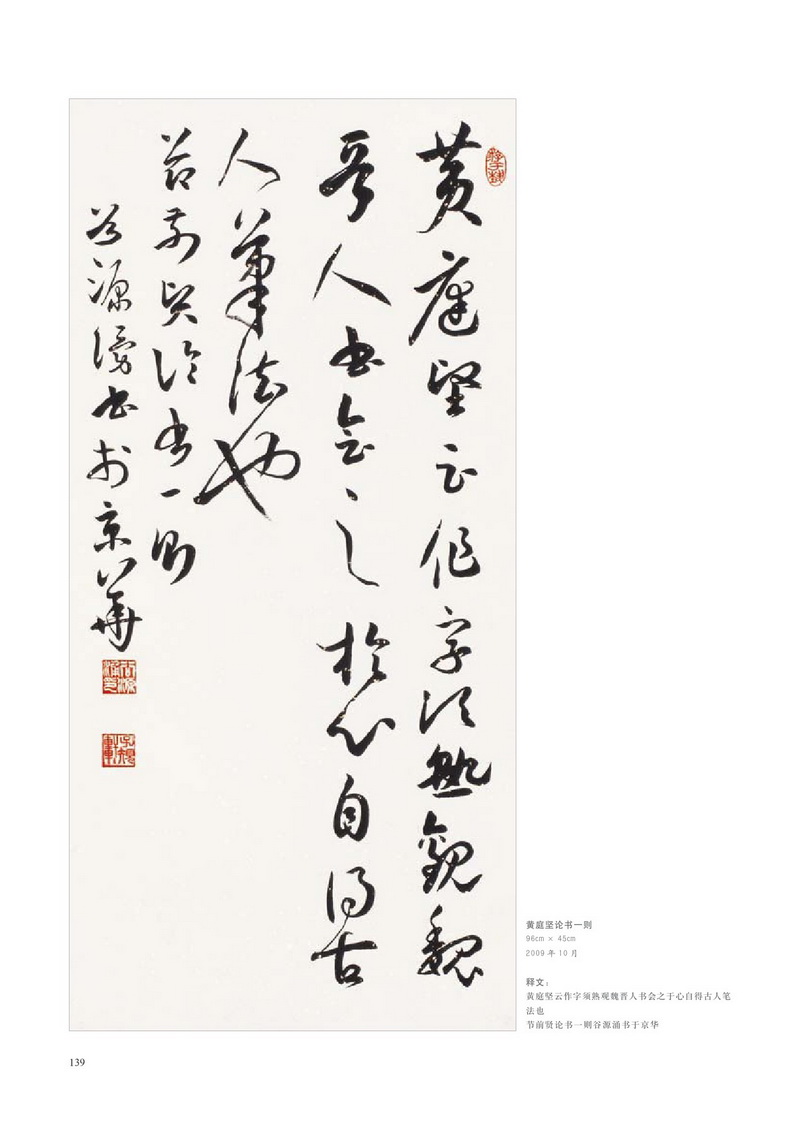 黄庭堅云作字須熟觀魏
晉人書會之於心自得古
人筆法也
節前賢論書一則
谷源涌書於京華
黄庭坚论书一则
96cm × 45cm
2009 年 10 月
释文：
黄庭坚云作字须熟观魏晋人书会之于心自得古人笔
法也
节前贤论书一则谷源涌书于京华
139